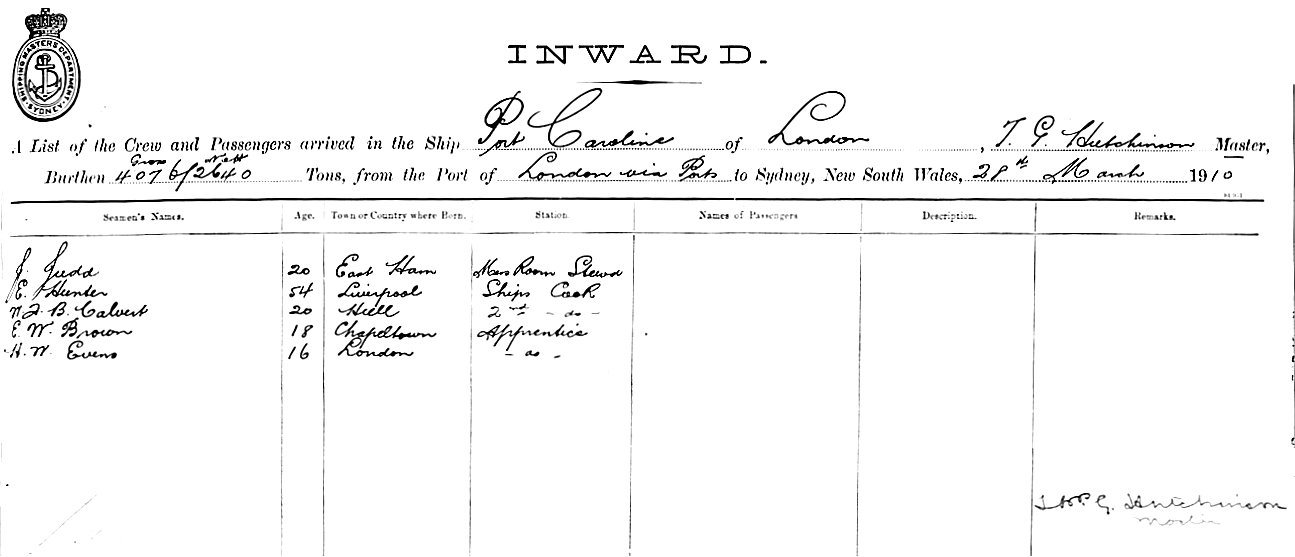 SHIPPING MASTERS DEPARTMENT SYDNEY
INWARD.
A List of the Crew and Passengers arrived in the Ship Port Caroline of London, T. G. Hutchinson Master,
Gross Nett
Burthen 4076/2640 Tons, from the Port of London via Ports to Sydney, New South Wales, 28th March 1910
Seamen's Names. Age. Town or Country where Born. Station. Names of Passengers Description. Remarks.
J. Judd 20 East Ham Mess Room Stewd
E. Hunter 54 Liverpool Ships Cook
B. Calvert 20 Hull 2nd - do -
E. W. Brown 18 Chapeltown Apprentice
H. W. Evens 16 London - do -
G. Hutchinson
Master